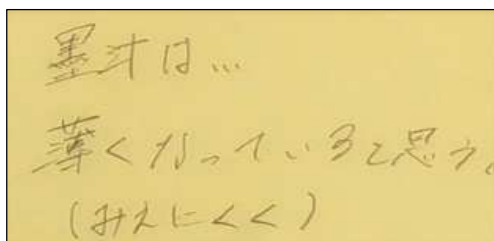 墨汁は…
薄くなっていると思う。
(みえにくく)